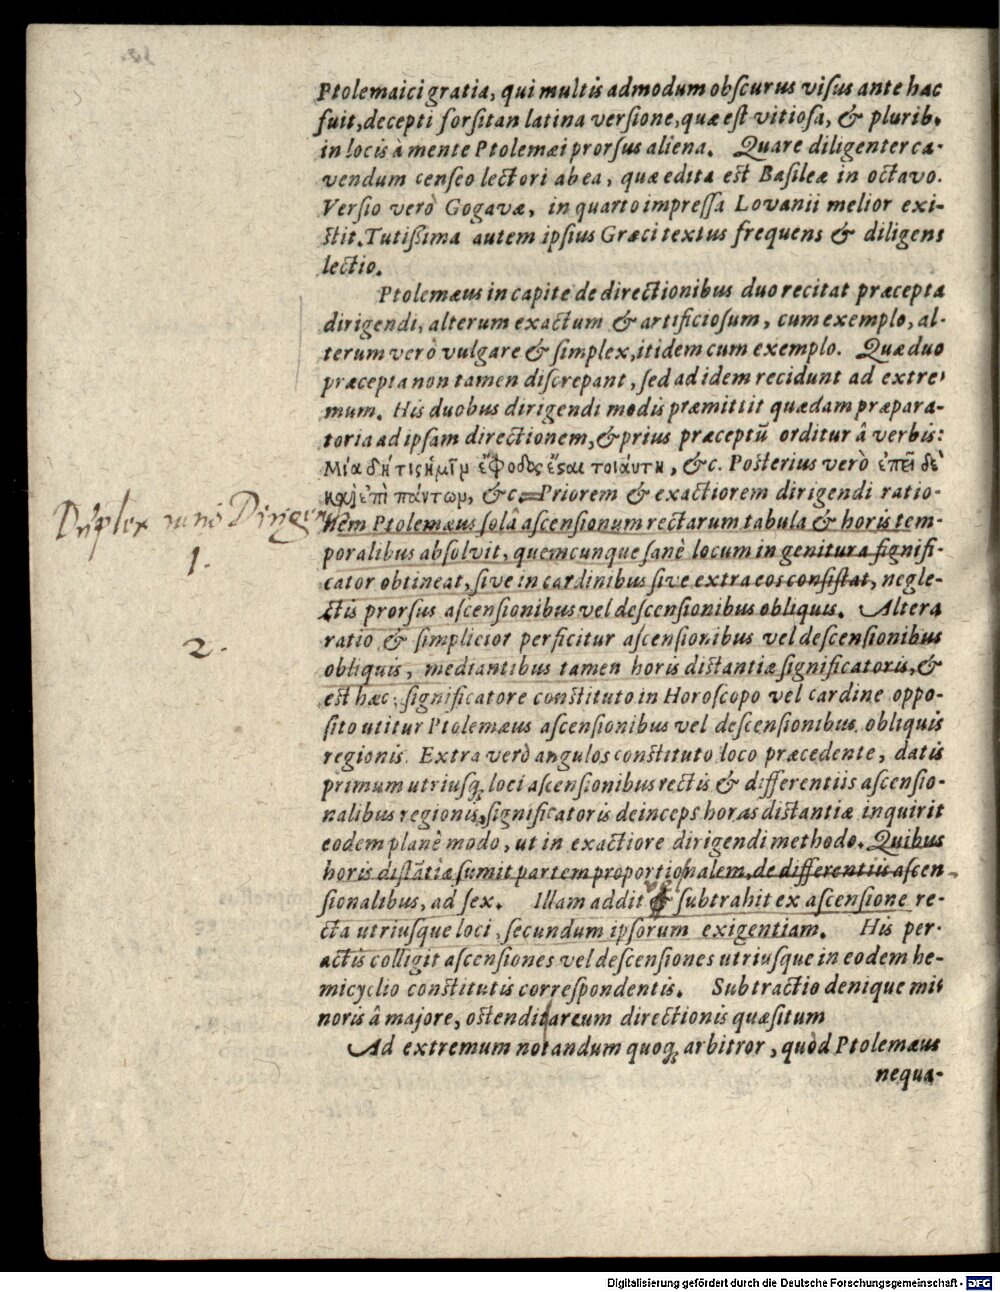 Ptolemaici gratia, qui multis admodum obſcurus viſus ante hac
fuit, decepti forſitan latina verſione, quæ eſt vitioſa, & plurib.
in locis à mente Ptolemæi prorſus aliena. Quare diligenter ca-
vendum cenſeo lectori ab ea, quæ edita eſt Baſileæ in octavo.
Verſio verò Gogavæ, in quarto impreſſa Lovanii melior exi-
ſtit. Tutißima autem ipſius Græci textus frequens & diligens
lectio.
Ptolemæus in capite de directionibus duo recitat præcepta
dirigendi, alterum exactum & artificioſum, cum exemplo, al-
terum verò vulgare & ſimplex, itidem cum exemplo. Quæ duo
præcepta non tamen diſcrepant, ſed ad idem recidunt ad extre-
mum. His duobus dirigendi modis præmittit quædam præpara-
toria ad ipſam directionem, & prius præceptũ orditur â verbis:
Μία δή τις ἡμῖν ἔφοδος ἔςαι τοιάυτη, &c. Poſterius verò ἐπεῖ δὲ
καὶ ἐπὶ πάντωμ, &c. Priorem & exactiorem dirigendi ratio-
Duplex modus Dirigendi
nem Ptolemæus ſolâ aſcenſionum rectarum tabula & horis tem-
1.
poralibus abſolvit, quemcunque ſanè locum in genitura ſignifi-
cator obtineat, ſive in cardinibus ſive extra eos conſiſtat, negle-
ctis prorſus aſcenſionibus vel deſcenſionibus obliquis. Altera
2.
ratio & ſimplicior perficitur aſcenſionibus vel deſcenſionibus
obliquis, mediantibus tamen horis diſtantiæ ſignificatoris, &
eſt hæc; ſignificatore conſtituto in Horoſcopo vel cardine oppo-
ſito utitur Ptolemæus aſcenſionibus vel deſcenſionibus obliquis
regionis. Extra verò angulos conſtituto loco præcedente, datis
primum utriuſq; loci aſcenſionibus rectis & differentiis aſcenſio-
nalibus regionis, ſignificatoris deinceps horas diſtantiæ inquirit
eodem planè modo, ut in exactiore dirigendi methodo. Quibus
horis diſtãtiæ ſumit partem proportionalem, de differentiis aſcen-
ſionalibus, ad ſex. Illam addit & ſubtrahit ex aſcenſione re-
cta utriuſque loci, ſecundum ipſorum exigentiam. His per-
actis colligit aſcenſiones vel deſcenſiones utriuſque in eodem he-
micyclio conſtitutis correſpondentis. Subtractio denique mi-
noris â majore, oſtendit arcum directionis quæſitum
Ad extremum notandum quoq; arbitror, quòd Ptolemæus
nequa-
Digitalisierung gefördert durch die Deutsche Forschungsgemeinschaft - DFG